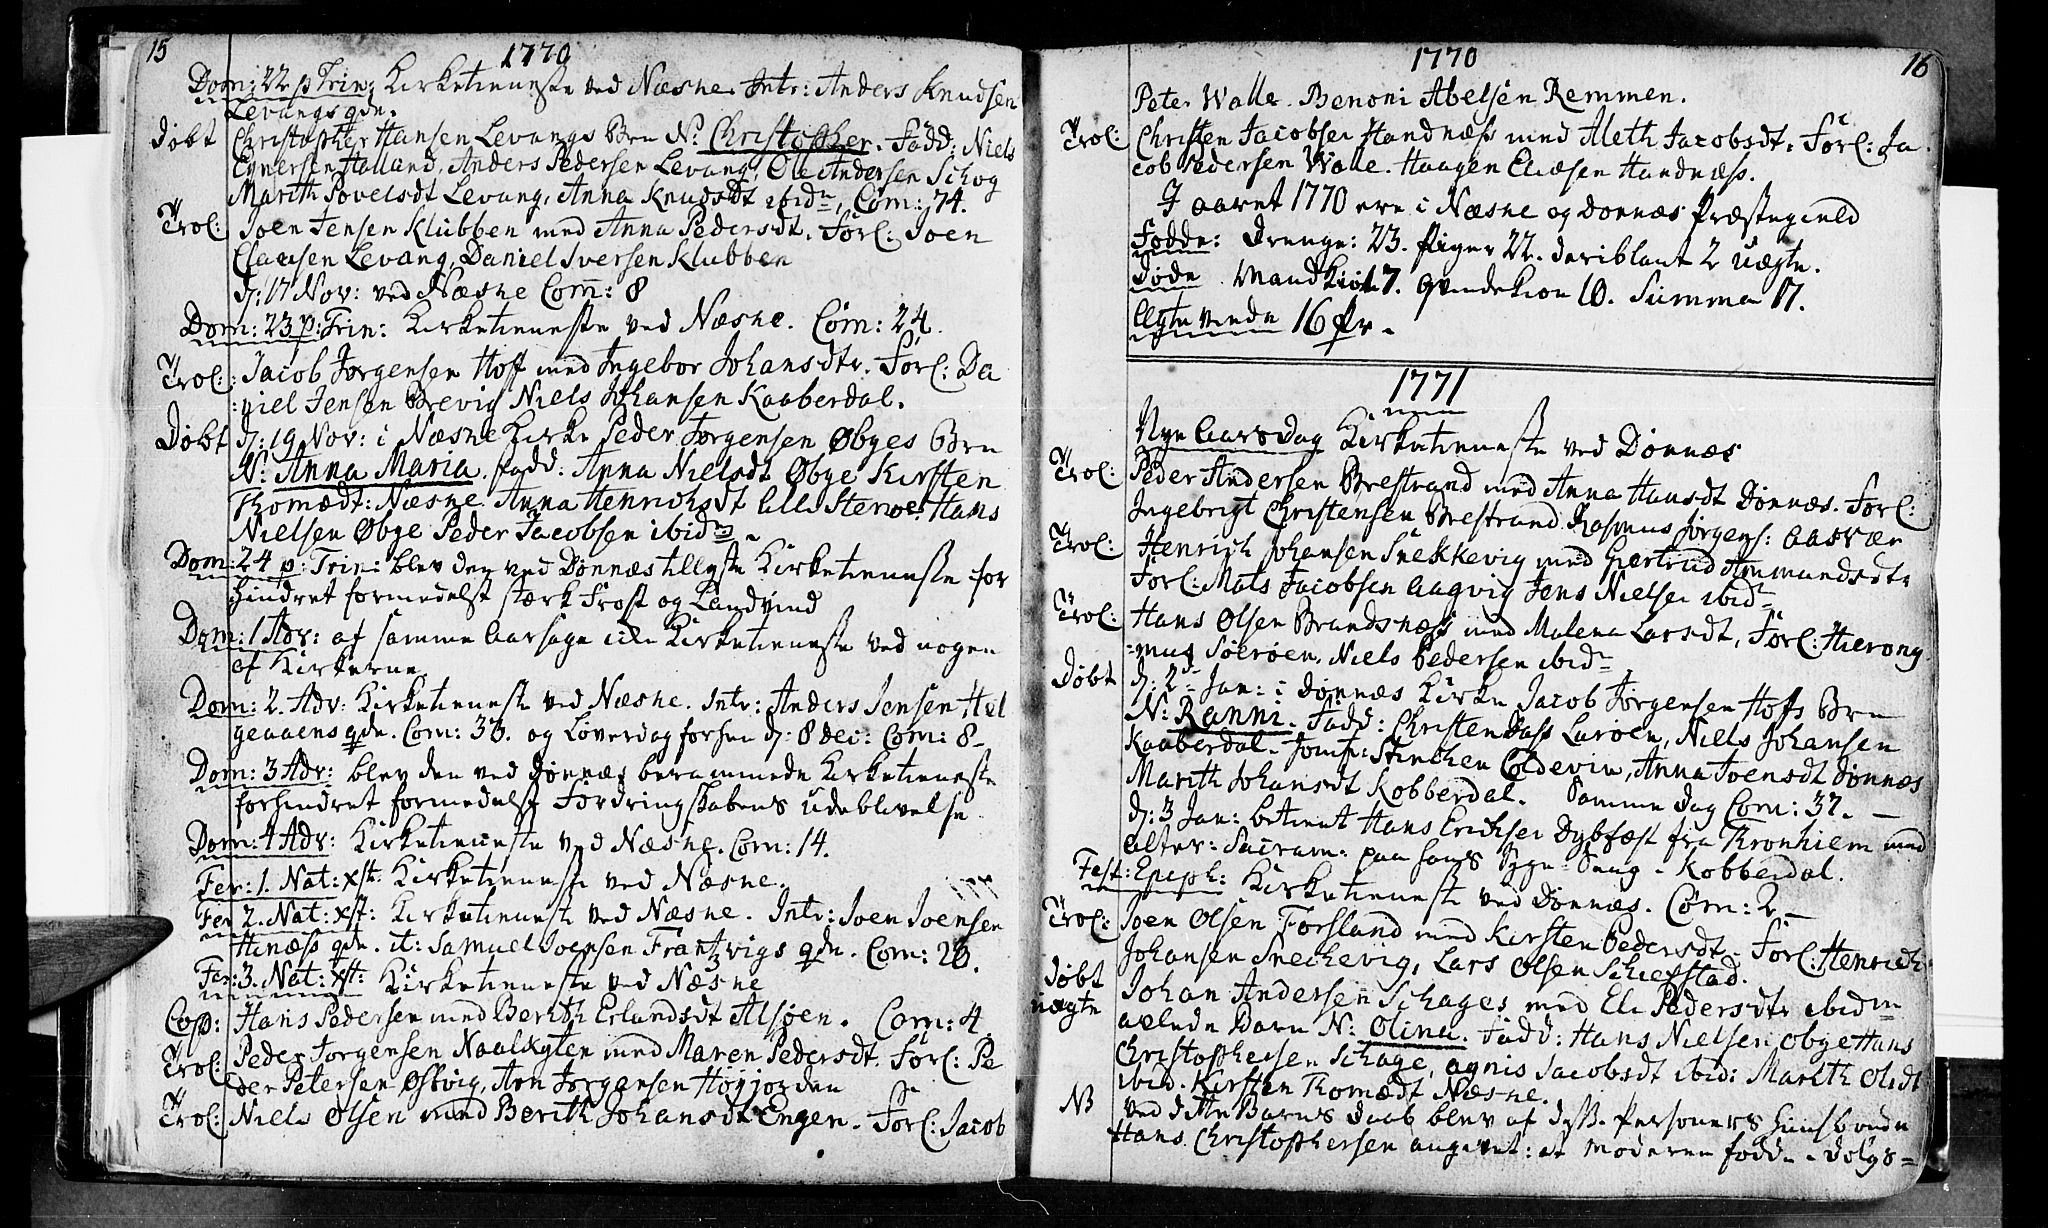 15
1770
Dom: 22 p Trin: Kirketieneste ved Næsne. Intr: Anders Knudsen
Levangs qde.
Døbt Christopher Hansen Levangs Brn N: Christopher. Fadd: Niels
Halland, Anders Pedersen Levang, Ole Andersen Schog
Marith Povelsdt Levang, Anna Knudsdt ibidn, Com: 74.
Trol: Joen Jensen Klubben med Anna Pedersdt. Forl: Joen
Clausen Levang, Daniel Iversen Klubben
d: 17 Nov: ved Næsne Com: 8
Dom: 23 p: Trin: Kirketieneste ved Næsne. Com: 24.
Trol: Jacob Jørgensen Hoff med Ingebor Johansdtr. Forl: Da
niel Jensen Brevig Niels Johansen Kaaberdal.
Døbt d: 19 Nov: i Næsne Kirke Peder Jørgensen Øbyes Brn
N: Anna Maria. Fadd: Anna Nielsdt Øbye Kirsten
Thomædt: Næsne Anna Henrichsdt Hans
Nielsen Øbye Peder Jacobsen ibidm.
Dom: 24 p: Trin: blev den ved Dønnæs tillyste Kirketieneste for
hindret formedelst stærk Frost og Landvind
Dom: 1 Adv: af samme Aarsage ikke Kirketieneste ved nogen
af Kirkerne
Dom: 2. Adv: Kirketieneste ved Næsne. Intr: Anders Jensen Hel
geaaens qde. Com: 33. og Løverdag forhen d: 8 dec: Com: 8
Dom: 3 Adv: blev den ved Dønnes berammede Kirketieneste
forhindret formedelst Fordringskabens udeblivelse
Dom: 4 Adv: Kirketieneste ved Næsne. Com: 14.
Fer: 1. Nat: xsti: Kirketieneste ved Næsne.
Fer 2. Nat: xst: Kirketieneste ved Næsne. Intr: Joen Joensen
qde. it: Samuel Joensen Frantzvigs qde. Com: 23.
Fer: 3. Nat: xst: Kirketieneste ved Næsne
Cop: Hans Pedersen med Berith Erlandsdt Alsøen. Com: 4.
Trol: Peder Jørgensen med Maren Pedersdt. Forl: Pe
der Petersen Østvig, Arn Jørgensen Høyjorden
Trol: Niels Olsen med Berith Johansdt Engen. Forl: Jacob
1770
16
Peter Walle. Benoni Abelsen Remmen.
Trol: Christen Jacobsen Handnæss med Aleth Jacobsdt. Forl: Ja
cob Pedersen Walle. Haagen Eliæsen Handnæss.
I aaret 1770 ere i Næsne og Dønnæs Præstegield
Fødde: drenge: 23. Piger 22. deriblant 2 uægte.
Døde Mandkiøn 7. Qvindekiøn 10. Summa 17.
Ægteviede 16 Pr.
1771
Nye Aarsdag Kirketieneste ved Dønnæs
Trol: Peder Andersen Brestrand med Anna Hansdt Dønnæs. Forl:
Ingebrigt Christensen Brestrand Rasmus Jørgens: Aasvær
Trol: Henrich Johansen Snekkevig med Giertrud Ammundsdtr
Forl: Mats Jacobsen Aagvig Jens Nielsen ibidn
Trol: Hans Olsen Brandsnæss med Malena Larsdt, Forl: Hierony
mus Søerøen, Niels Pedersen ibidn
Døbt d: 2d Jan: i Dønnæs Kirke Jacob Jørgensen Hofs Brn
N: Ranni. Fadd: Christen Dass Larøen, Niels Johansen
Kaaberdal. Jomfr: Stinchen Coldevin, Anna Joensdt Dønnæs
Marith Johansdt Kobberdal. Samme dag Com: 37.
d: 3 Jan: betient Hans Erichsen Dybfæst fra Tronhiem med
alter: Sacram: paa hans Syge Seng. Kobberdal.
Fest: Epiph: Kirketieneste ved Dønnæs. Com: 2
Trol: Joen Olsen Forsland med Kirsten Pedersdt. Forl: Henrich
Johansen Sneckevig, Lars Olsen Schiefstad.
Døbt uægte Johan Andersen Schages med Eli Pedersdtr ibidm
aulede Barn N: Olina. Fadd: Hans Nielsen Obye Hans
Christophersen Schage, agnis Jacobsdt ibid: Marith Olsdt
ibid. Kirsten Thomædt Næsne.
NB ved dette Barns daab blev af dess. Personers Huusbonde
Hans Christophersen angivet: at Moderen fødde dølgs